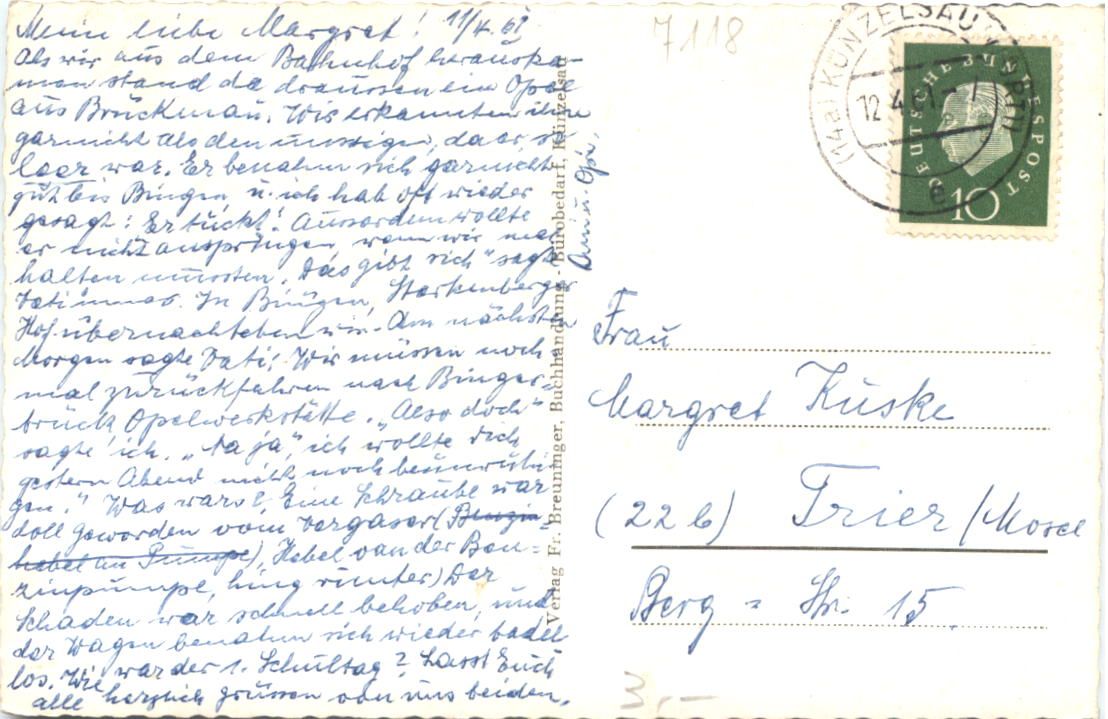 Meine liebe Margret! 11/4.61
Als wir aus dem Bahnhof herauska-
men stand da draussen ein Opel
aus Brückenau. Wir erkannten ihn
garnicht als den unsrigen, da er so
leer war. Er benahm sich garnicht
gut bis Bingen u. ich hab oft wieder
gesagt: Er tückt! Ausserdem wollte
er nicht anspringen, wenn wir mal
halten mussten. "Das gibt sich" sagte
Vati immer. In Bingen, Starkenberger
Hof übernachteten wir. Am nächsten
Morgen sagte Vati: Wir müssen noch
mal zurückfahren nach Binger-
brück Opelwerkstätte. "Also doch"
sagte ich. "Na ja, ich wollte Dich
gestern Abend nicht noch beunruhi-
gen." Was war's? Eine Schraube war
toll geworden vom Vergaser (Benzin-
hebel an Pumpe), Hebel von der Ben-
zinpumpe, hing runter) Der
Schaden war schnell behoben, und
der Wagen benahm sich wieder tadel-
los. Wie war der 1. Schultag? Lasst Euch
alle herzlich grüssen von uns beiden,
Verlag Fr. Breuninger, Buchhandlung - Bürobedarf, Künzelsau
7118
(14a) KÜNZELSAU
12.4.61
e
DEUTSCHE BUNDESPOST
10
Frau
Margret Küske
(22b) Trier/Mosel
Berg-Str. 15.
3,-